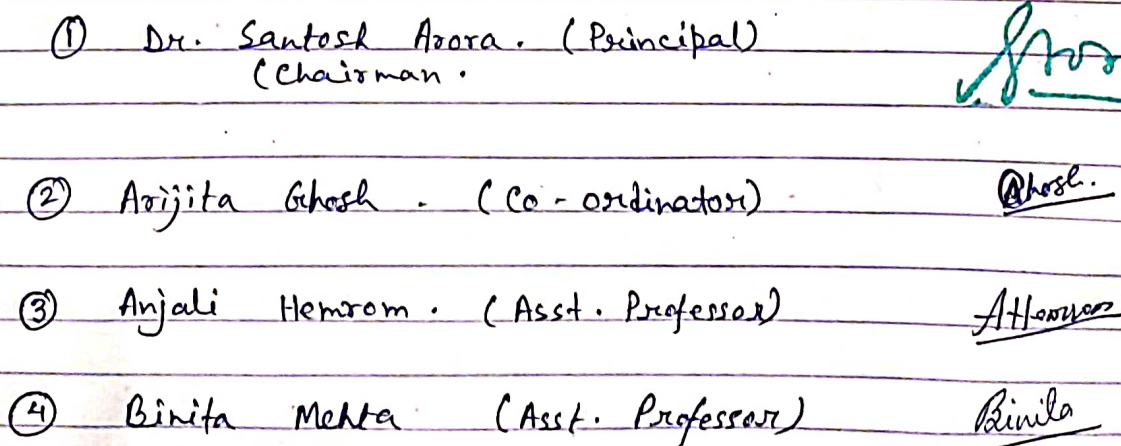 ① Dr. Santosh Arora. (Principal)
(Chairman.
② Arijita Ghosh. (Co-ordinator) Ghosh.
③ Anjali Hemrom. (Asst. Professor) AHemrom
④ Binita Mehta (Asst. Professor) Binita